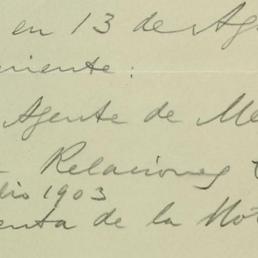 en 13 de Ag
niente:
Agente de Me
Relaciones
lio 1903
enta de la Not